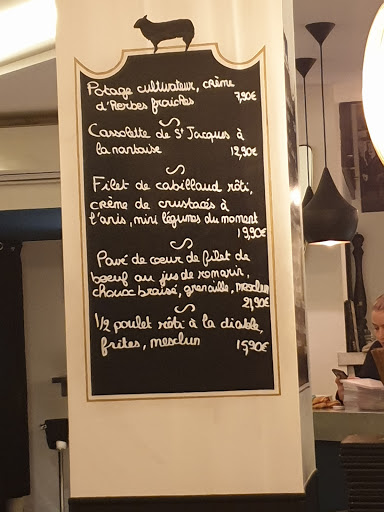 Potage cultivateur, crème
d'herbes fraîches 7,90€
Cassolette de St Jacques à
la nantaise 12,90€
Filet de cabillaud rôti,
crème de crustacés à
l'anis, mini légumes du moment
19,90€
Pavé de coeur de filet de
boeuf au jus de romarin,
choux braisé, grenaille, mesclun
21,90€
1/2 poulet rôti à la diable,
frites, mesclun 15,90€